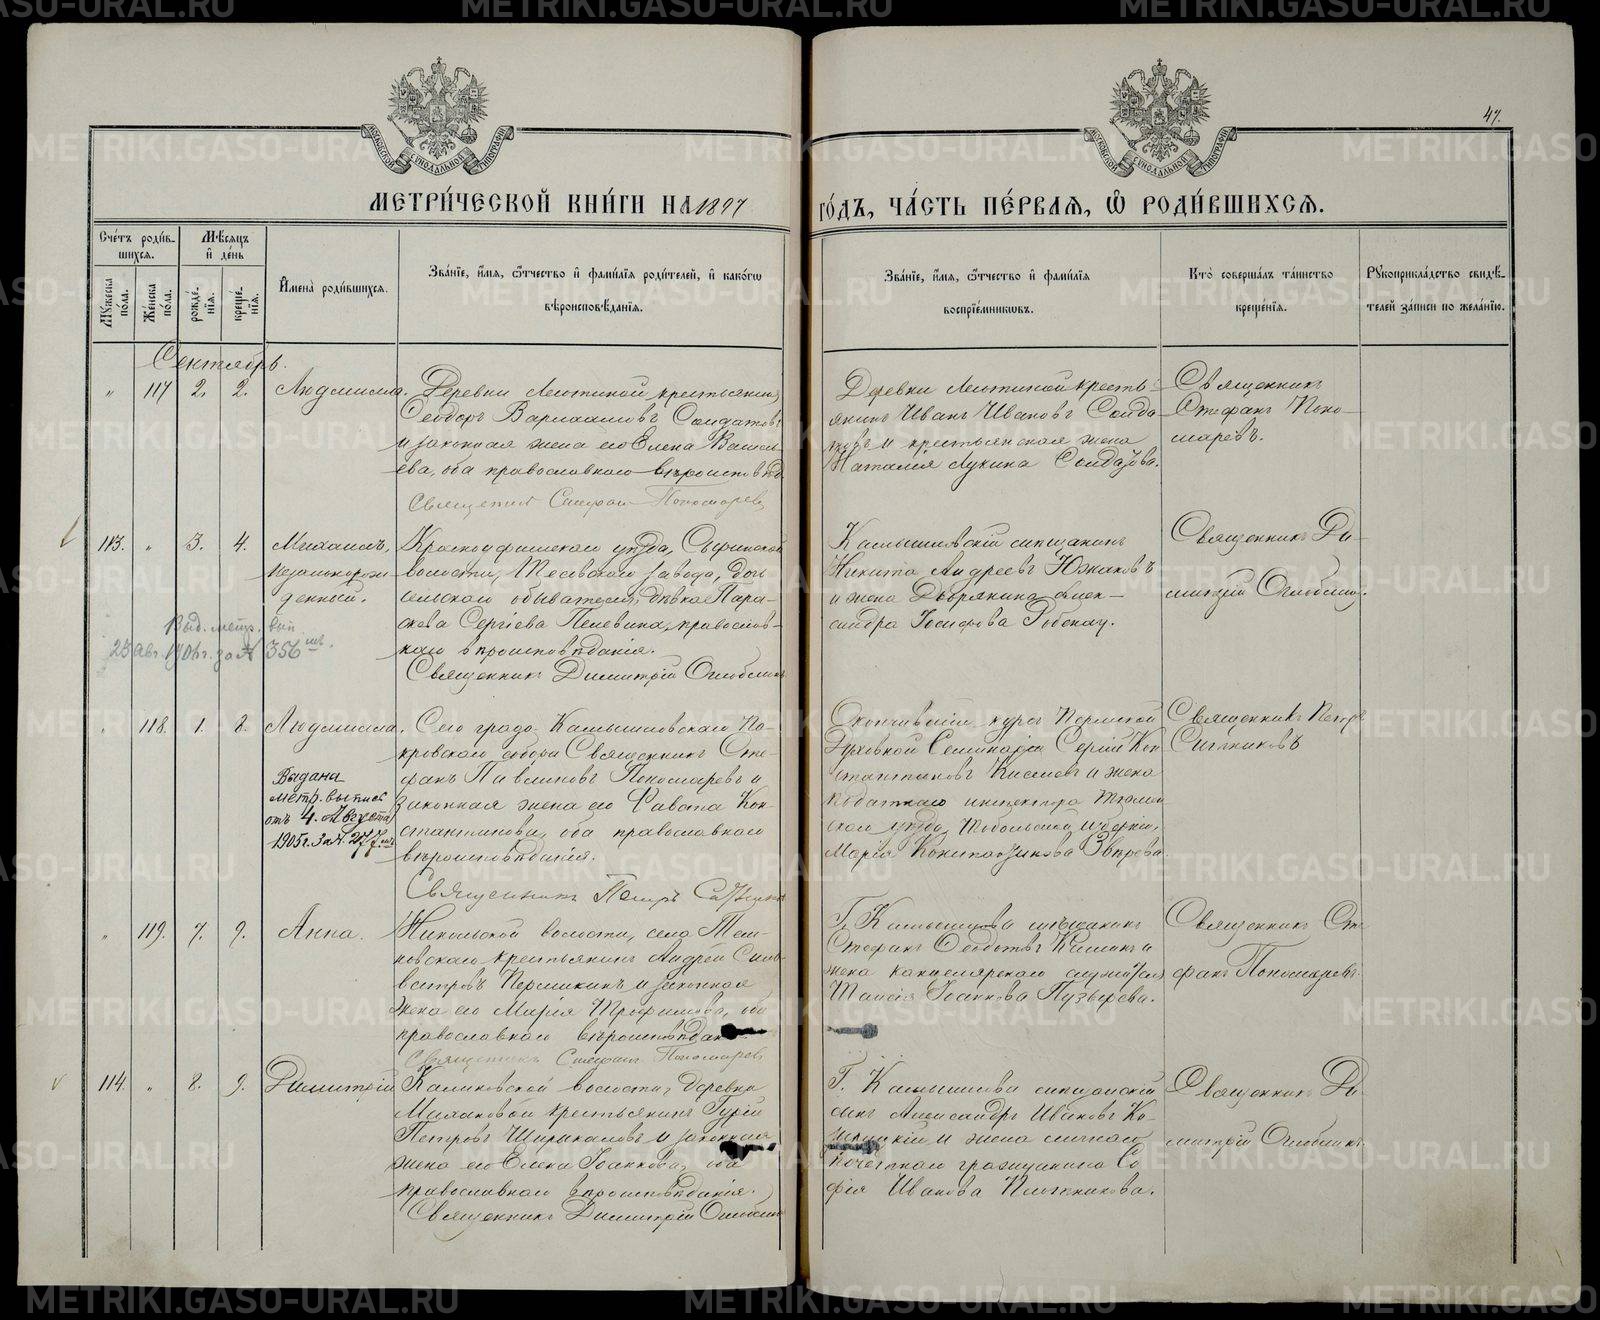 47.
МЕТРИ́ЧЕСКОЙ КНИ́ГИ НА 1897 ГО́ДЪ, ЧА́СТЬ ПЕ́РВАЯ, Ѽ РОДИ́ВШИХСЯ.
Сче́тъ роди́в-
шихся.
Мꙋ́жеска по́ла.
Же́нска по́ла.
Мѣ́сяцъ и҆ де́нь
рожде́-нїя.
креще́-нїя.
И҆мена̀ роди́вшихся.
Зва́нїе, и҆́мя, ѻ҆́тчество и҆ фами́лїя роди́телей, и҆ како́гѡ
вѣроисповѣ́данїя.
Зва́нїе, и҆́мя, ѻ҆́тчество и҆ фами́лїя
воспрїе́мникѡвъ.
Кто̀ соверша́лъ та́инство
креще́нїя.
Рꙋкоприкла́дство свидѣ́-
телей за́писи по жела́нїю.
Сентябрь.
" 117 2. 2. Людмилла.
Деревни крестьянинъ
Ѳеодоръ Варлаамовъ Солдатовъ
и законная жена его Елена Василь-
ева, оба православнаго вѣроисповѣд.
Священникъ Стефанъ Пономаревъ
Деревни кресть-
янинъ Иванъ Ивановъ Солда-
товъ и крестьянская жена
Наталія Лукина Солдатова.
Священникъ
Стефанъ Поно-
маревъ.
113. " 3. 4. Михаилъ,
незаконорож-
денный.
Выд. метр. вып.
23 авг. 1906 г. за № 356
Красноуфимскаго уѣзда, Сыринской
волости, завода, дочь
сельскаго обывателя, дѣвка Пара-
скева Сергіева Пелевина, православ-
наго вѣроисповѣданія.
Священникъ Димитрій
Камышловскій мѣщанинъ
Никита Андреевъ Южаковъ
и жена Дворянина Алек-
сандра Іосифова
Священникъ Ди-
митрій
" 118. 1. 8. Людмилла.
Выдана
метр. выпись
отъ 4. Августа
1905 г. за №
Сего града Камышловскаго По-
кровскаго собора Священникъ Сте-
фанъ Павлиновъ Пономаревъ и
законная жена его Кон-
стантинова, оба православнаго
вѣроисповѣданія.
Священникъ Петръ
Окончившій курсъ Пермской
Духовной Семинаріи Сергій Кон-
стантиновъ и жена
податнаго инспектора Тюмен-
скаго уѣзда, Тобольской губерніи,
Марія Константинова Звѣрева.
Священникъ Петръ
" 119. 7. 9. Анна.
Никольской волости, села
крестьянинъ Андрей Силь-
вестровъ Пермикинъ и законная
жена его Марія Трофимова, оба
православнаго вѣроисповѣдан
Священникъ Стефанъ Пономаревъ
Г. Камышлова мѣщанинъ
Стефанъ Ѳеодотовъ и
жена канцелярскаго служителя
Таисія Іоаннова Пузырева.
Священникъ Сте-
фанъ Пономаревъ.
114. " 8. 9. Димитрій
Калиновской волости, деревни
крестьянинъ Гурій
Петровъ и законная
жена его Елена Іоаннова, оба
православнаго вѣроисповѣданія.
Священникъ Димитрій
Г. Камышлова мѣщанскій
сынъ Александръ Ивановъ
и жена личнаго
почетнаго гражданина Со-
фія Иванова Плотникова.
Священникъ Ди-
митрій
METRIKI.GASO-URAL.RU